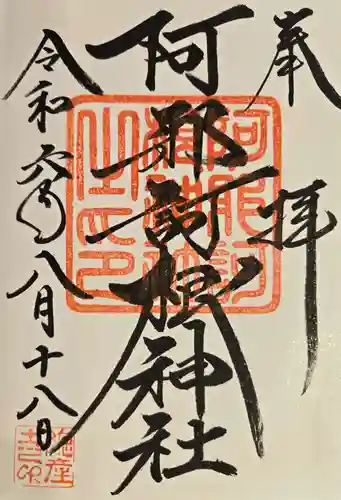 奉拝
阿那訶根神社
令和六年八月十八日